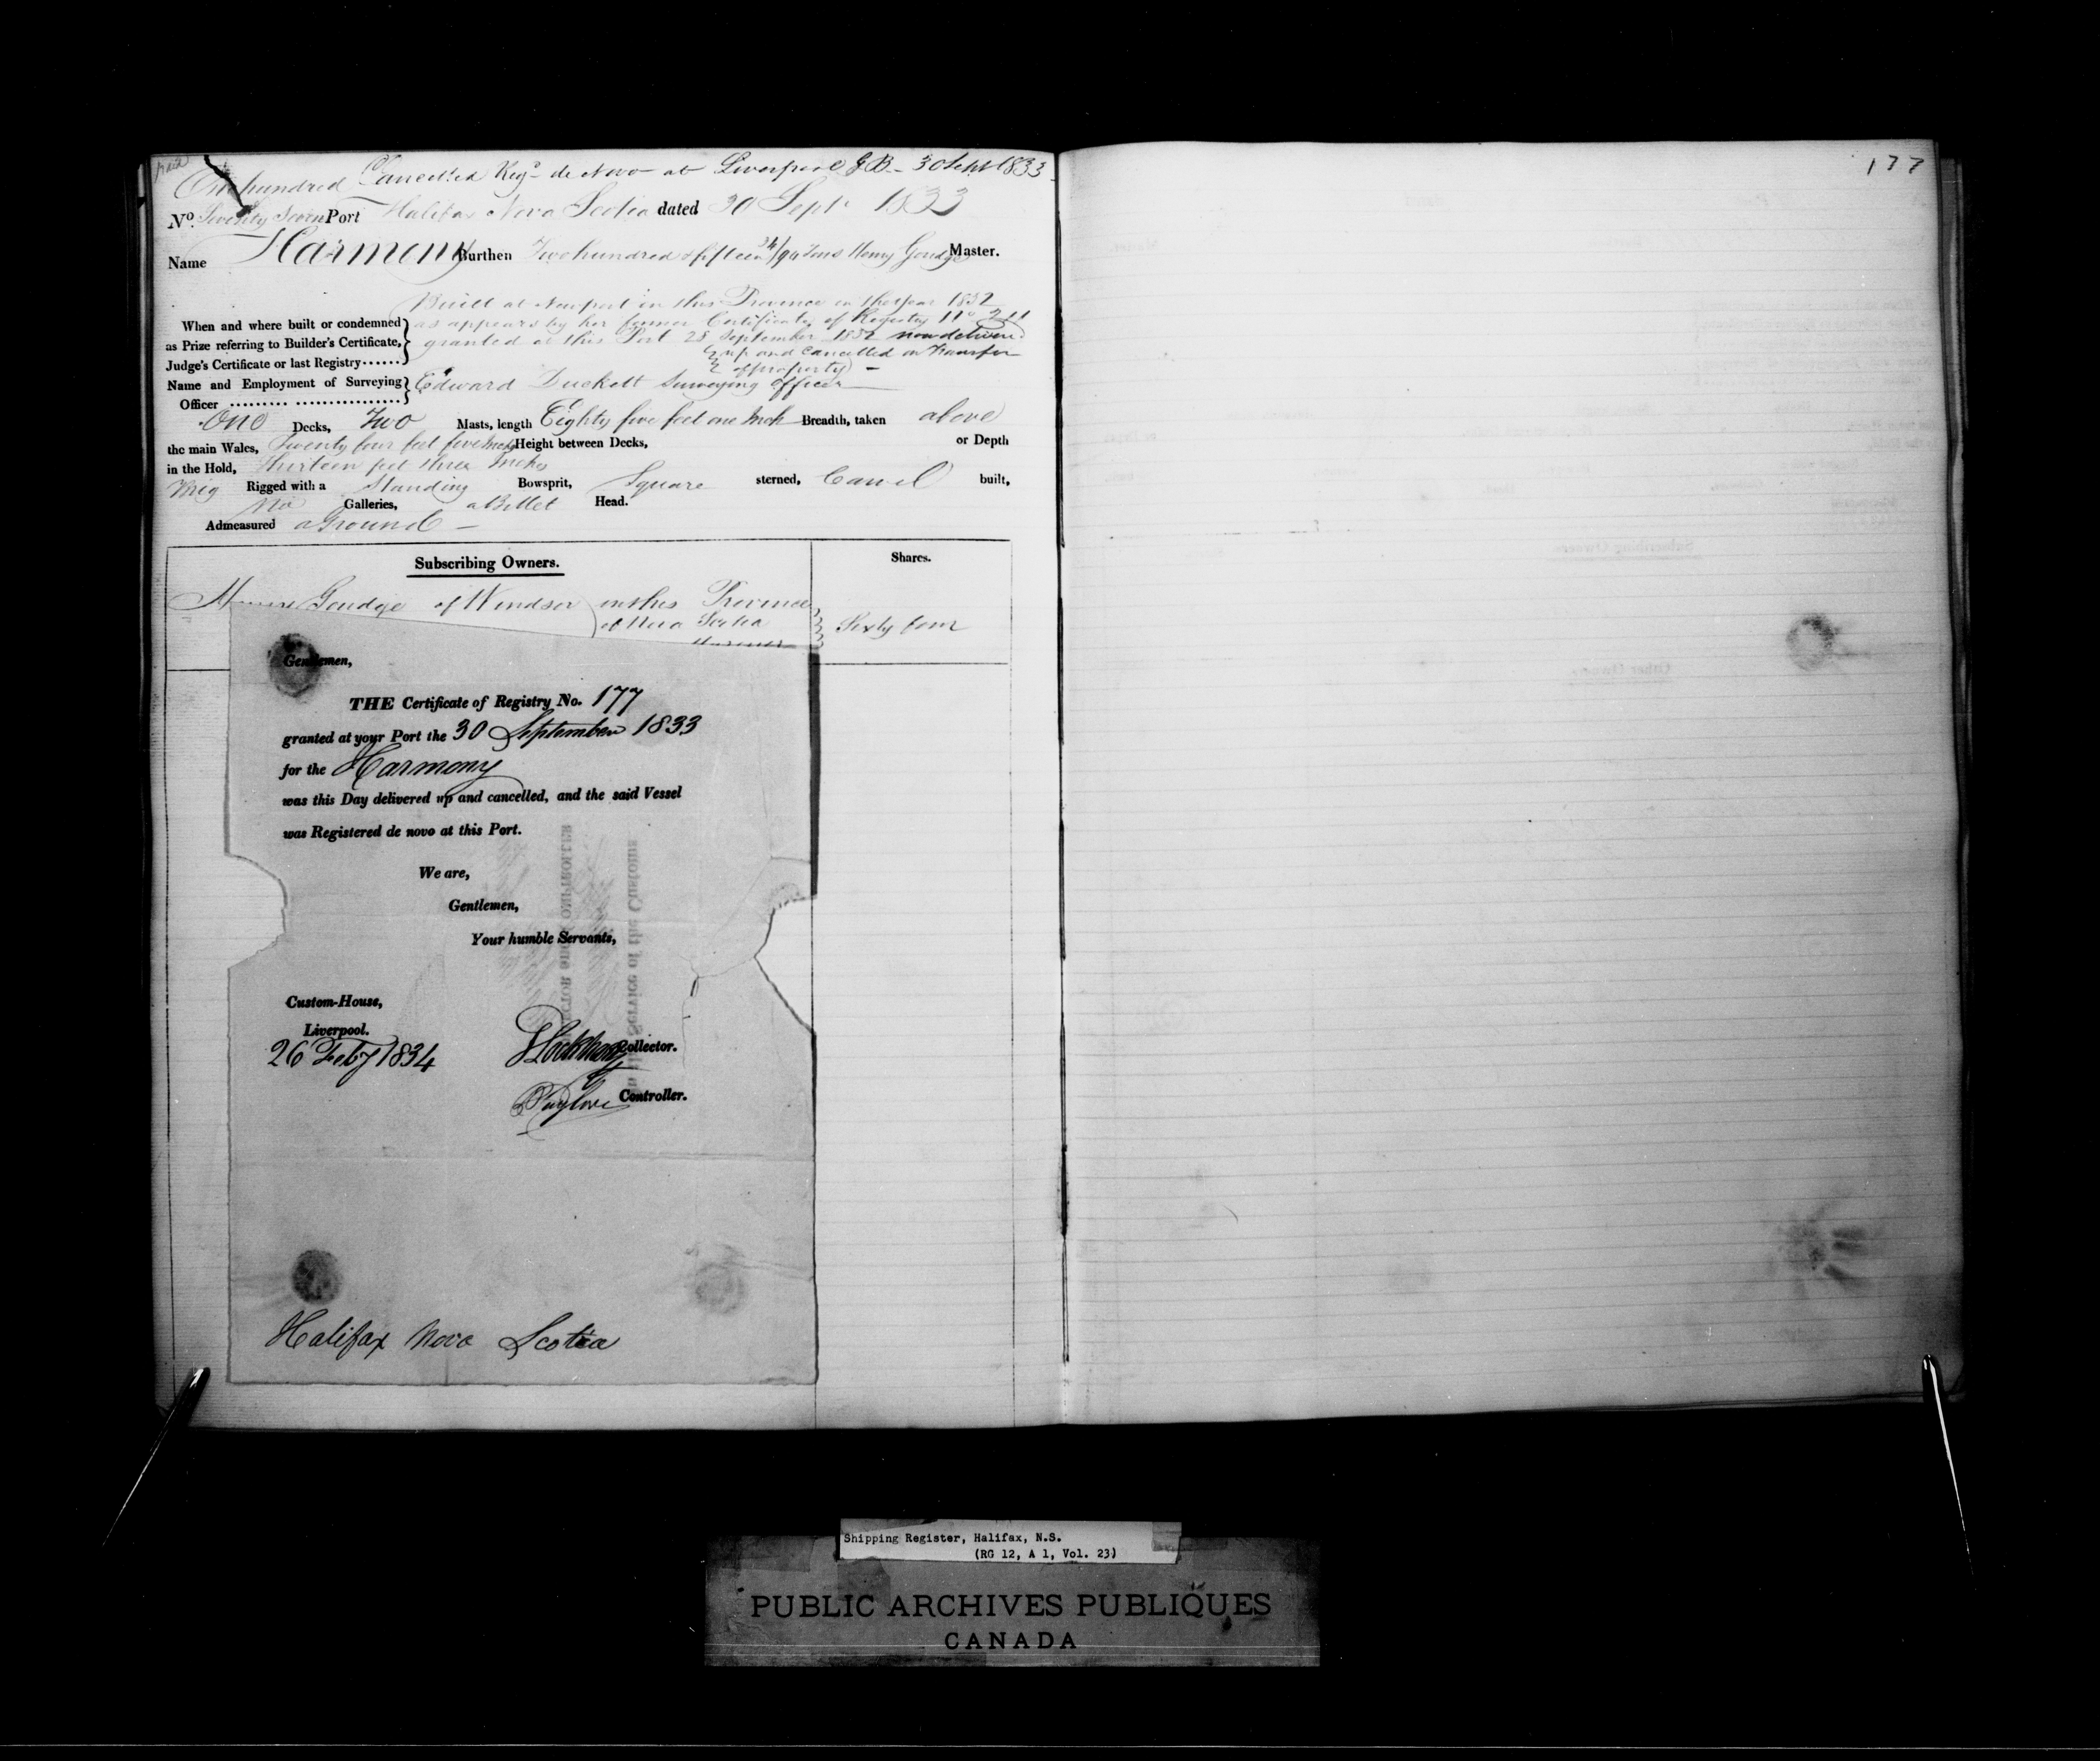 Cancelled Regd de Novo at Liverpool G.B. 30 Sept 1833
One hundred
No. Seventy Seven Port Halifax Nova Scotia dated 30 Sept 1833
Name Harmony Burthen Two hundred & fifteen 34/94 Tons Henry Goudge Master.
Built at Newport in this Province in the year 1832
When and where built or condemned as appears by her former Certificate of Registry No 211
as Prize referring to Builder's Certificate, granted at this Port 28 September 1832 now delivered
Judge's Certificate or last Registry...... up and cancelled on Transfer
of property
Name and Employment of Surveying Edward Duckett Surveying Officer
Officer ......... ................
One Decks, Two Masts, length Eighty five feet one Inch Breadth, taken above
the main Wales, Twenty four feet five Inches Height between Decks, or Depth
in the Hold, thirteen feet three Inches
Brig Rigged with a Standing Bowsprit, Square sterned, Carvel built,
No Galleries, a Billet Head.
Admeasured aGround
Subscribing Owners. Shares.
Goudge of Windsor in this Province
of Nova Scotia Sixty four
Gentlemen,
THE Certificate of Registry No. 177
granted at your Port the 30 September 1833
for the Harmony
was this Day delivered up and cancelled, and the said Vessel
was Registered de novo at this Port.
We are,
Gentlemen,
Your humble Servants,
Custom-House,
Liverpool.
26 Feby 1834
Collector.
Controller.
Halifax Nova Scotia
177
Shipping Register, Halifax, N.S.
(RG 12, A 1, Vol. 23)
PUBLIC ARCHIVES PUBLIQUES
CANADA